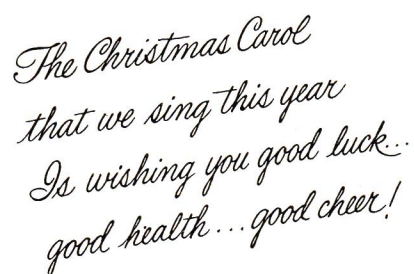 The Christmas Carol
that we sing this year
Is wishing you good luck...
good health...good cheer!